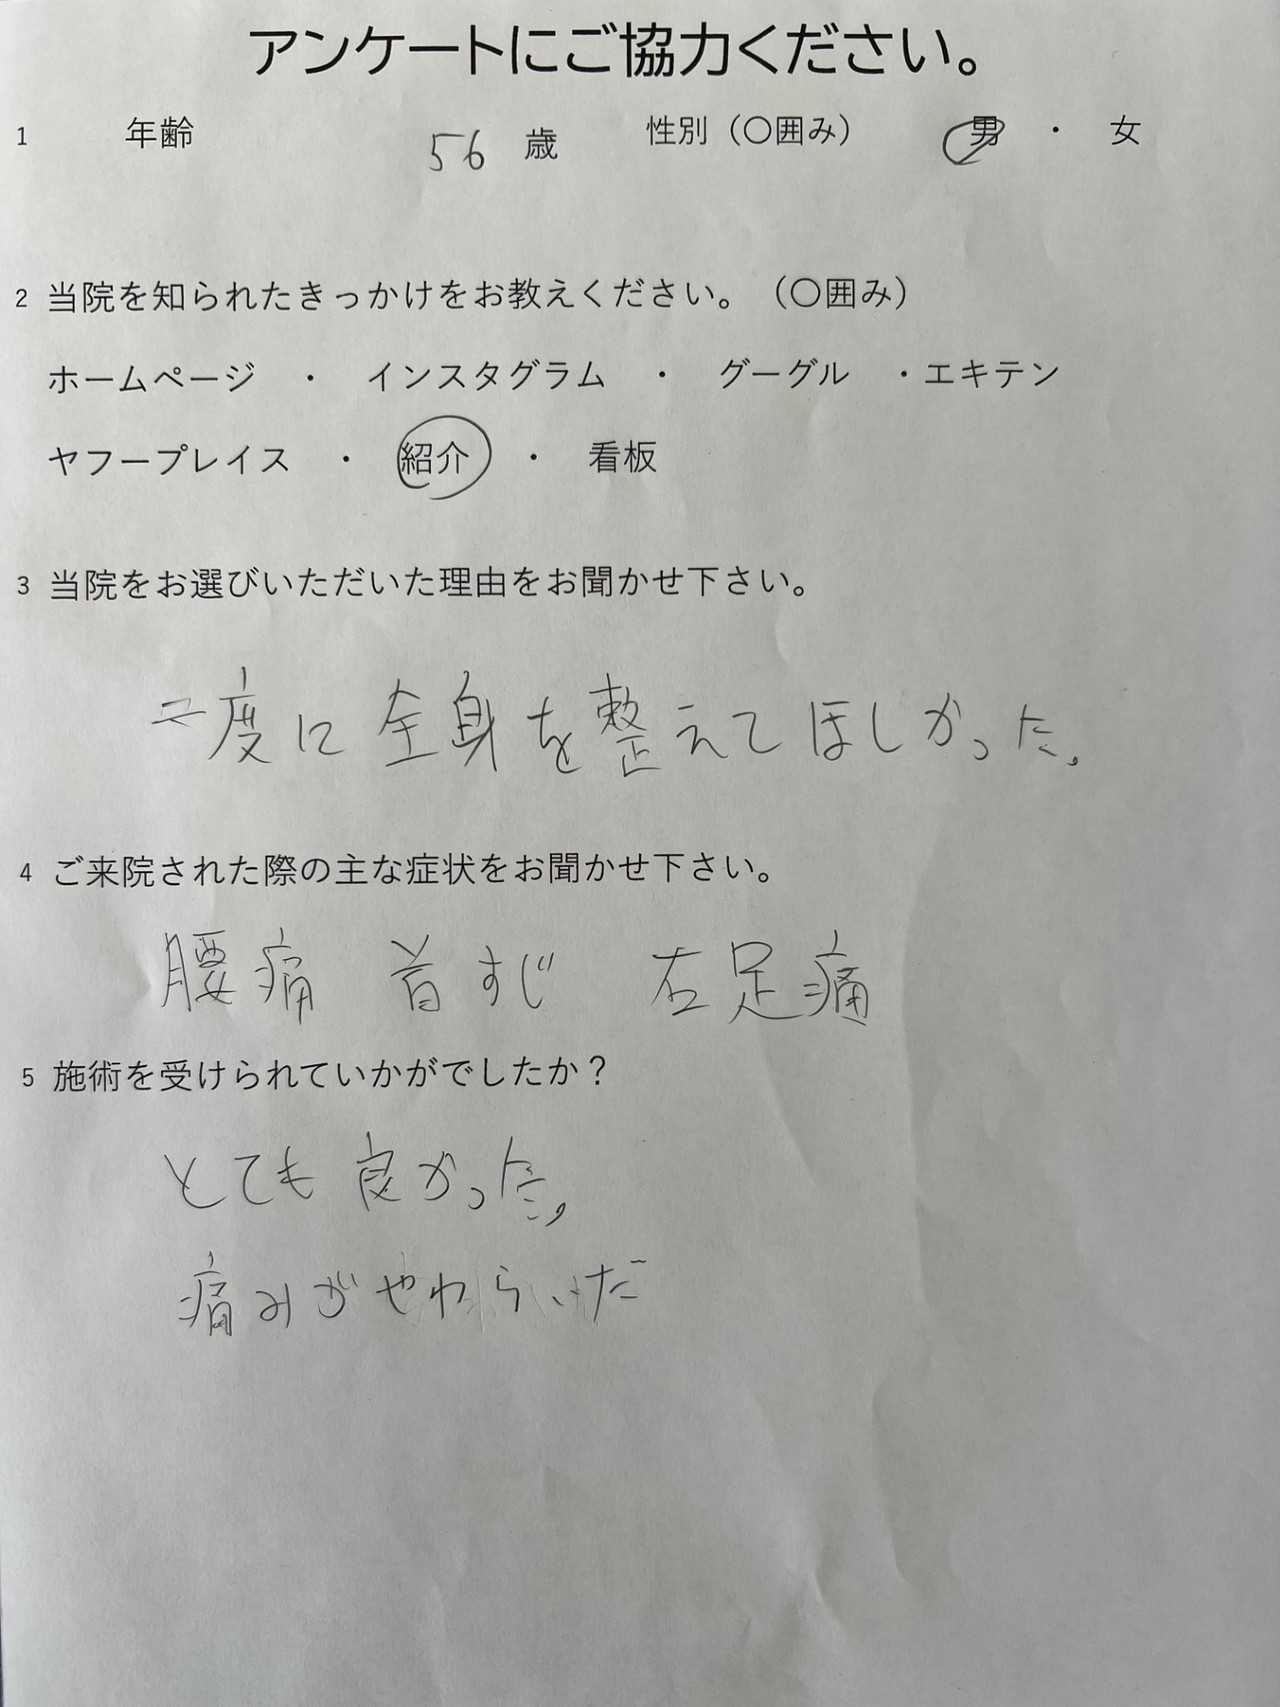 アンケートにご協力ください。
1 年齢 56 歳 性別（〇囲み） 男 ・ 女
2 当院を知られたきっかけをお教えください。（〇囲み）
ホームページ ・ インスタグラム ・ グーグル ・エキテン
ヤフープレイス ・ 紹介 ・ 看板
3 当院をお選びいただいた理由をお聞かせ下さい。
一度に全身を整えてほしかった。
4 ご来院された際の主な症状をお聞かせ下さい。
腰痛 首すじ 右足痛
5 施術を受けられていかがでしたか？
とても良かった。
痛みがやわらいだ